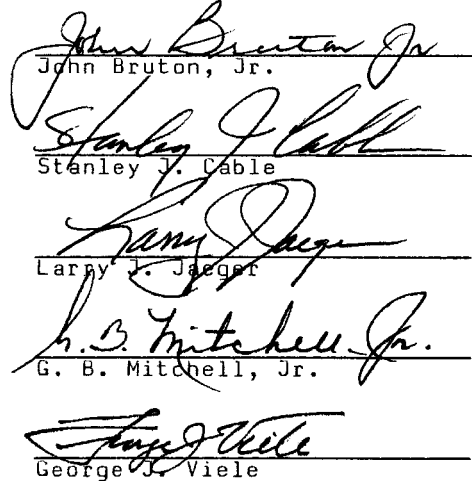 John Bruton Jr
John Bruton, Jr.
Stanley J Cable
Stanley J. Cable
Larry J Jaeger
Larry J. Jaeger
G. B. Mitchell Jr.
G. B. Mitchell, Jr.
George J Viele
George J. Viele